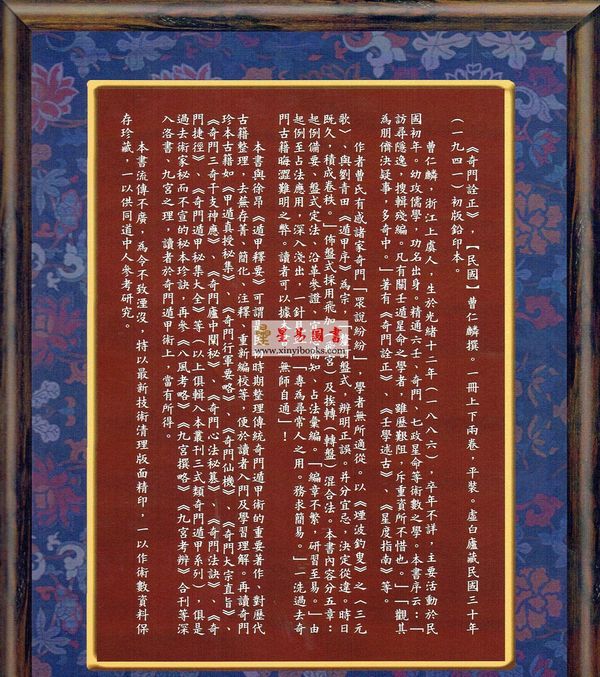 《奇門詮正》，【民國】曹仁麟撰。一冊上下兩卷，平裝。虛白廬藏民國三十年
（一九四一）初版鉛印本。
曹仁麟，浙江上虞人，生於光緒十二年（一八八六），卒年不詳，主要活動於民
國初年。幼攻儒學，功名出身。精通六壬、奇門、七政星命等術數之學。本書序云：「
訪尋隱逸，搜輯殘編。凡有關壬遁星命之學者，雖歷艱阻，斥重資所不惜也。」「觀其
為朋儕決疑事，多奇中。」著有《奇門詮正》、《壬學述古》、《星度指南》等。
作者曹氏有感諸家奇門「眾說紛紛」，學者無所適從。以《煙波釣叟》之〈三元
歌〉、與劉青田《遁甲序》為宗，盤式，辨明正誤。并分宜忌，決定從違。時日
既久，積成卷秩。」佈盤式採用飛加宮）及挨轉（轉盤）混合法。本書內容分五章：
起例備要、盤式定法、沿革參證、知、占法彙編。「編章不繁，研習至易。」由
起例至占法應用，深入淺出，一針「專為尋常人之用。務求簡易。」一洗過去奇
門古籍晦澀難明之弊。讀者可以據無師自通」！
本書與徐昂《遁甲釋要》可謂時期整理傳統奇門遁甲術的重要著作、對歷代
古籍整理，去蕪存菁、簡化、注釋、重新編校等，便於讀者入門及學習理解。再讀奇門
珍本古籍如《甲遁真授秘集》、《奇門行軍要略》、《奇門仙機》、《奇門大宗直旨》、
《奇門三奇干支神應》、《奇門廬中闡秘》、《奇門心法秘纂》、《奇門法訣》、《奇
門捷徑》、《奇門遁甲秘集大全》等（以上俱輯入本叢刊三式類奇門遁甲系列），俱是
過去術家秘而不宣的秘本珍訣，再參《八風考略》《九宮撰略》《九宮考辨》合刊等深
入洛書、九宮之理，讀者於奇門遁甲術上，當有所得。
本書流傳不廣，為令不致湮沒，特以最新技術清理版面精印，一以作術數資料保
存珍藏，一以供同道中人參考研究。
星易圖書
www.xinyibooks.com